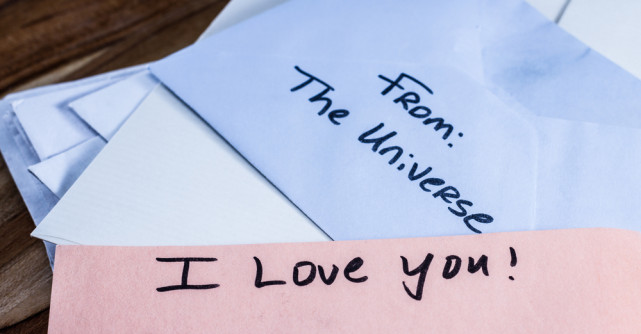 From:
The Universe
I Love you!